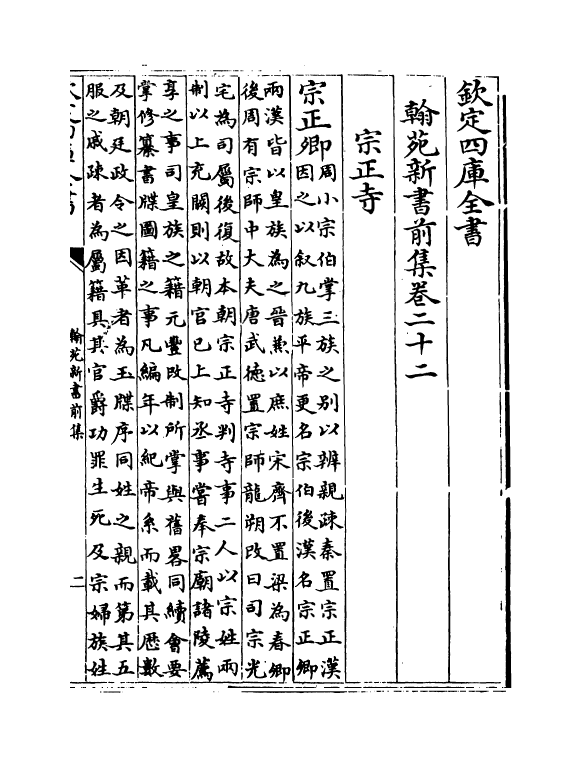 欽定四庫全書
翰苑新書前集卷二十二
宗正寺
宗正卿周小宗伯掌三族之别以辨親疎秦置宗正漢
因之以叙九族平帝更名宗伯後漢名宗正卿
兩漢皆以皇族為之晉兼以庶姓宋齊不置梁為春卿
後周有宗師中大夫唐武徳置宗師龍朔改曰司宗光
宅為司屬後復故本朝宗正寺判寺事二人以宗姓兩
制以上充闕則以朝官已上知丞事嘗奉宗廟諸陵薦
享之事司皇族之籍元豐改制所掌與舊畧同續會要
掌修纂書牒圖籍之事凡編年以紀帝系而載其歴數
及朝廷政令之因革者為玉牒序同姓之親而第其五
服之戚疎者為屬籍具其官爵功罪生死及宗婦族姓
翰苑新書前集
二